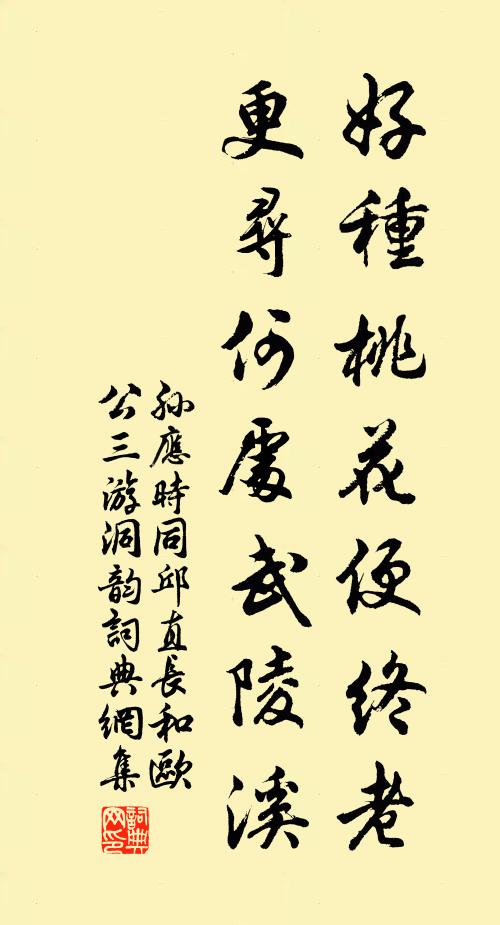 好種桃花便終老
更尋何處武陵溪
孫應時同邱直長和歐
公三游洞韵詞典網集
詞典网印